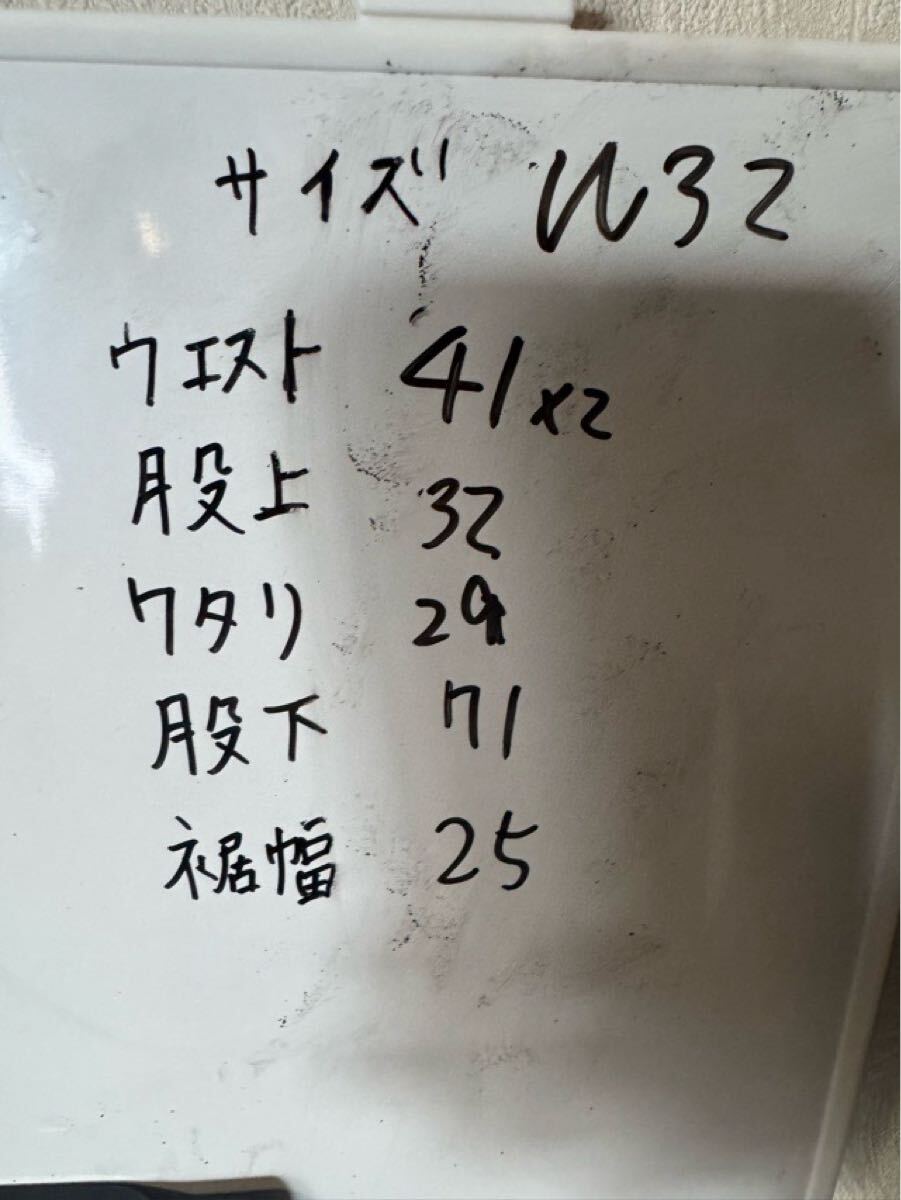 サイズ W32
ウエスト 41x2
股上 32
ワタリ 29
股下 71
裾幅 25